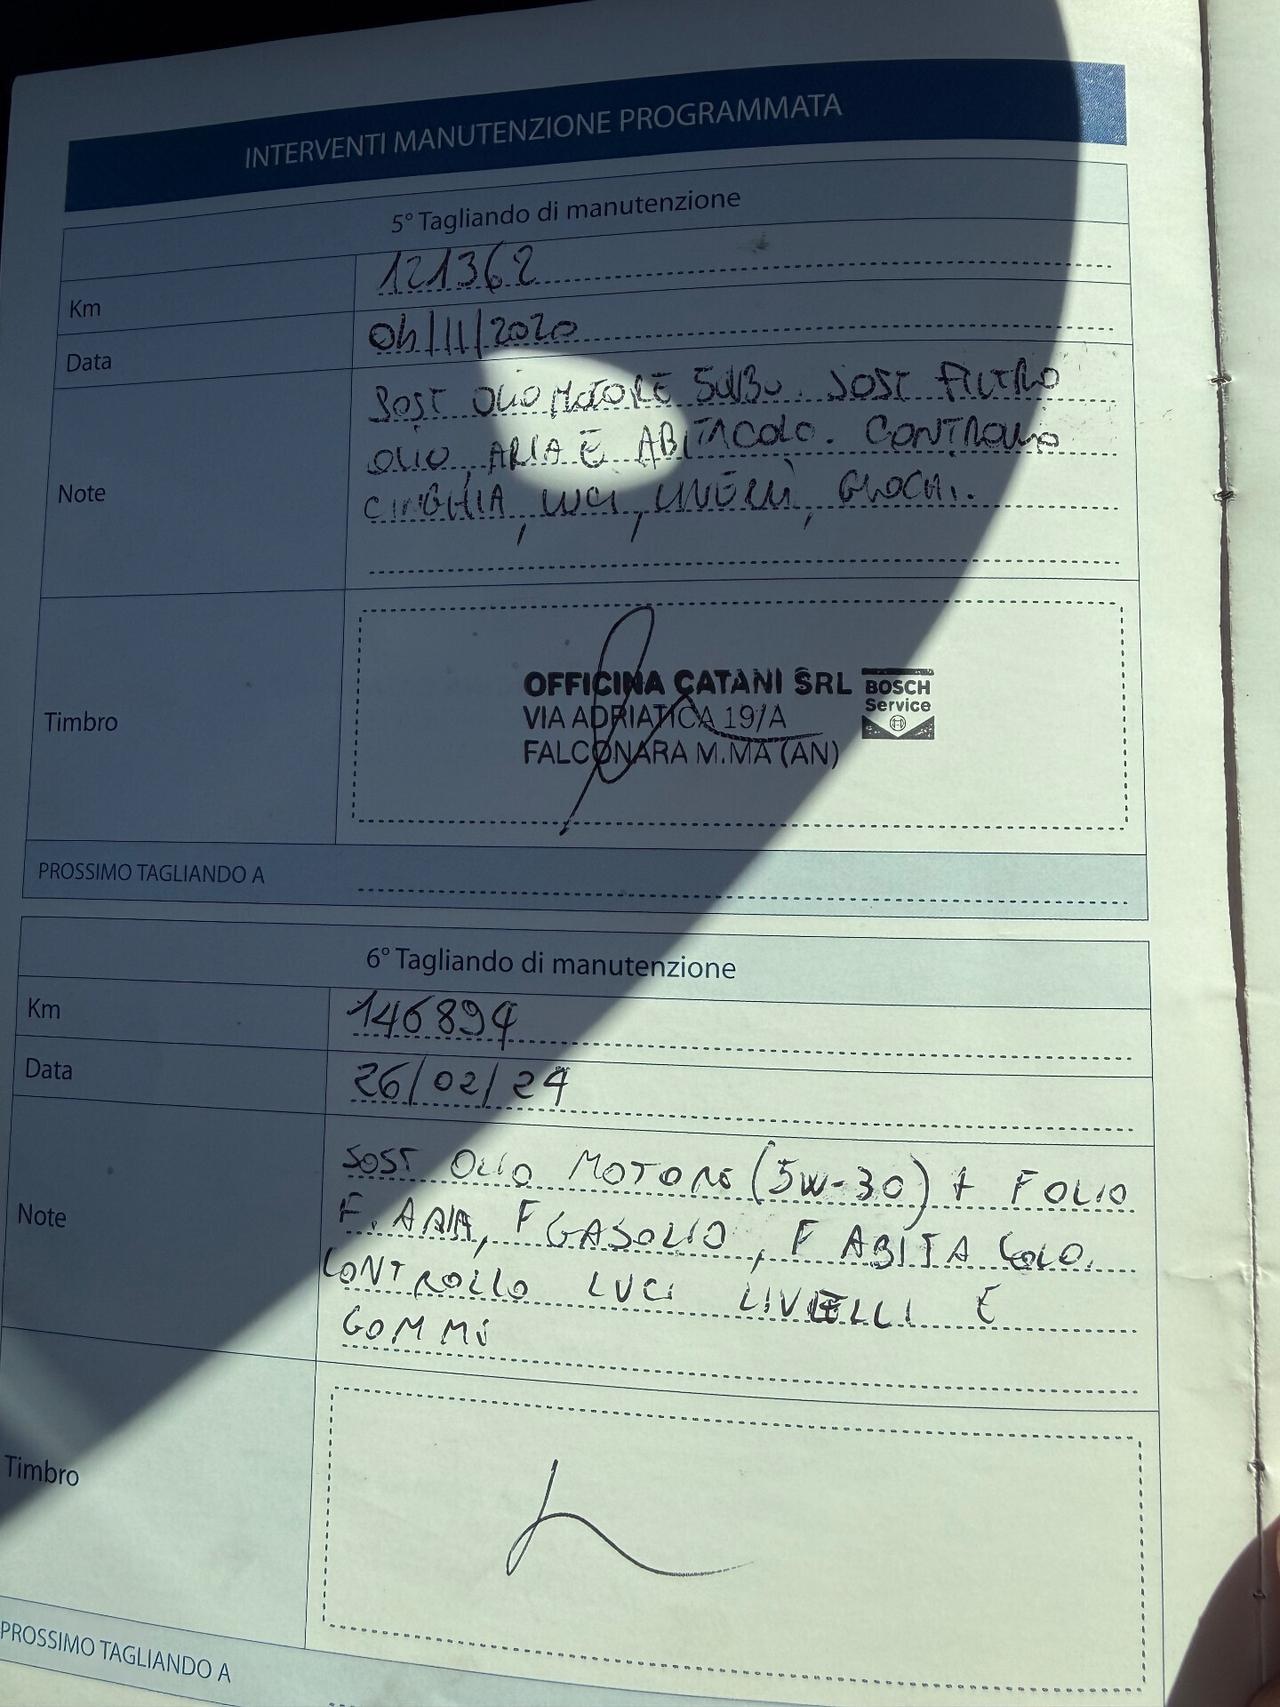 INTERVENTI MANUTENZIONE PROGRAMMATA
5° Tagliando di manutenzione
Km 121362
Data 04/11/2020
Note SOST OLIO MOTORE 5W30. SOST FILTRO
OLIO, ARIA E ABITACOLO. CONTROLLO
CINGHIA, LUCI, LIVELLI, GIOCHI.
Timbro
OFFICINA CATANI SRL
VIA ADRIATICA 19/A
FALCONARA M.MA (AN)
BOSCH
Service
PROSSIMO TAGLIANDO A
6° Tagliando di manutenzione
Km 146894
Data 26/02/24
Note SOST OLIO MOTORE (5W-30) + F OLIO
F. ARIA, F GASOLIO, F ABITACOLO.
CONTROLLO LUCI LIVELLI E
GOMME
Timbro
PROSSIMO TAGLIANDO A